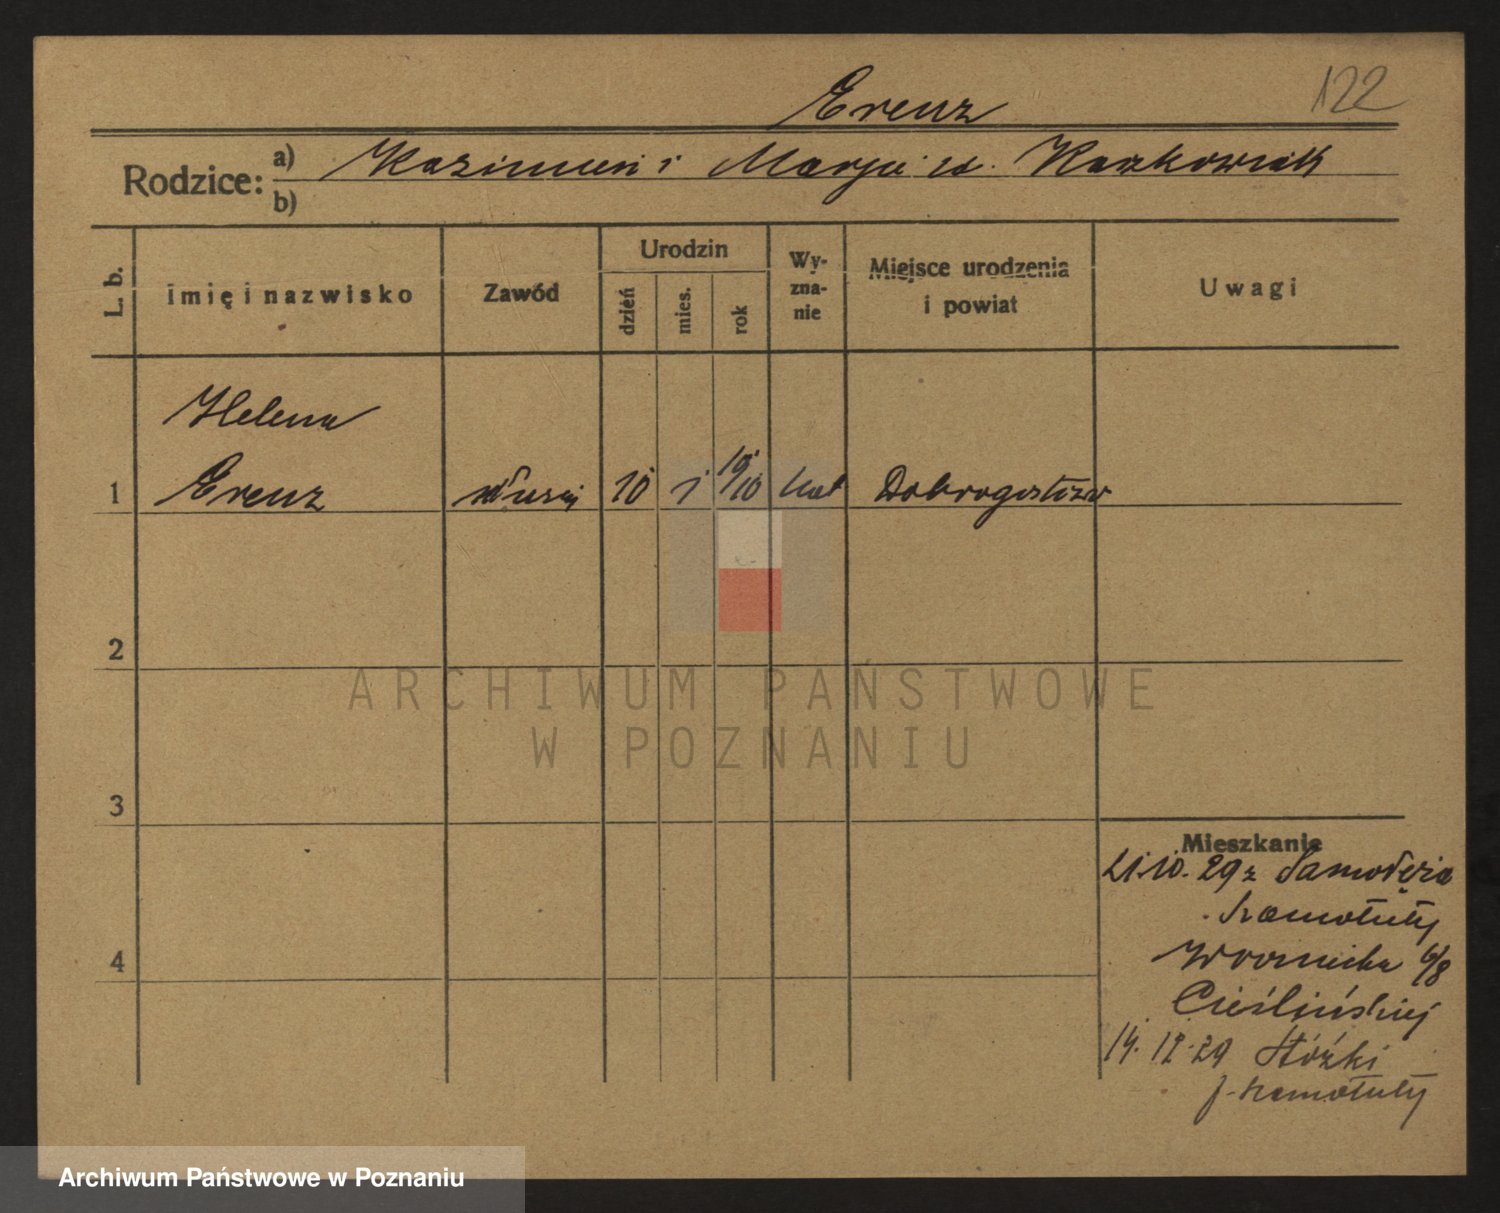 122
Erenz
Rodzice: a) Kazimierz i Marja ur. Kaczkowiak
b)
L. b.
imię i nazwisko
Zawód
Urodzin
dzień
mies.
rok
Wy-
zna-
nie
Miejsce urodzenia
i powiat
Uwagi
Helena
1 Erenz służąc 10 1 1910 kat Dobrogostowo
2
3
4
ARCHIWUM PAŃSTWOWE
W POZNANIU
Mieszkanie
21.10.29 z Samołęża
Szamotuły
Wroniecka 6/8
Cieślińskiej
14.12.29 Stóżki
p. Szamotuły
Archiwum Państwowe w Poznaniu